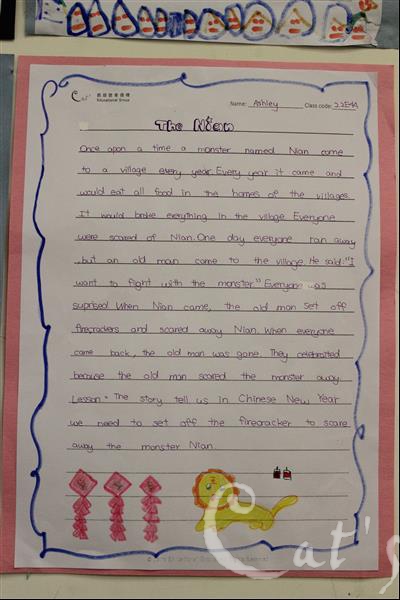 Cat's
Educational Group
Name: Ashley Class code: 22E4A
The Nian
Once upon a time a monster named Nian come
to a village every year. Every year it came and
would eat all food in the homes of the villages.
It would broke everything in the village. Everyone
were scared of Nian. One day everyone ran away
, but an old man came to the village. He said: "I
want to fight with the monster." Everyone was
suprised. When Nian came, the old man set off
firecrackers and scared away Nian. When everyone
came back, the old man was gone. They celebrated
because the old man scared the monster away.
Lesson: The story tell us in Chinese New Year
we need to set off the firecracker to scare
away the monster Nian.
Cat's